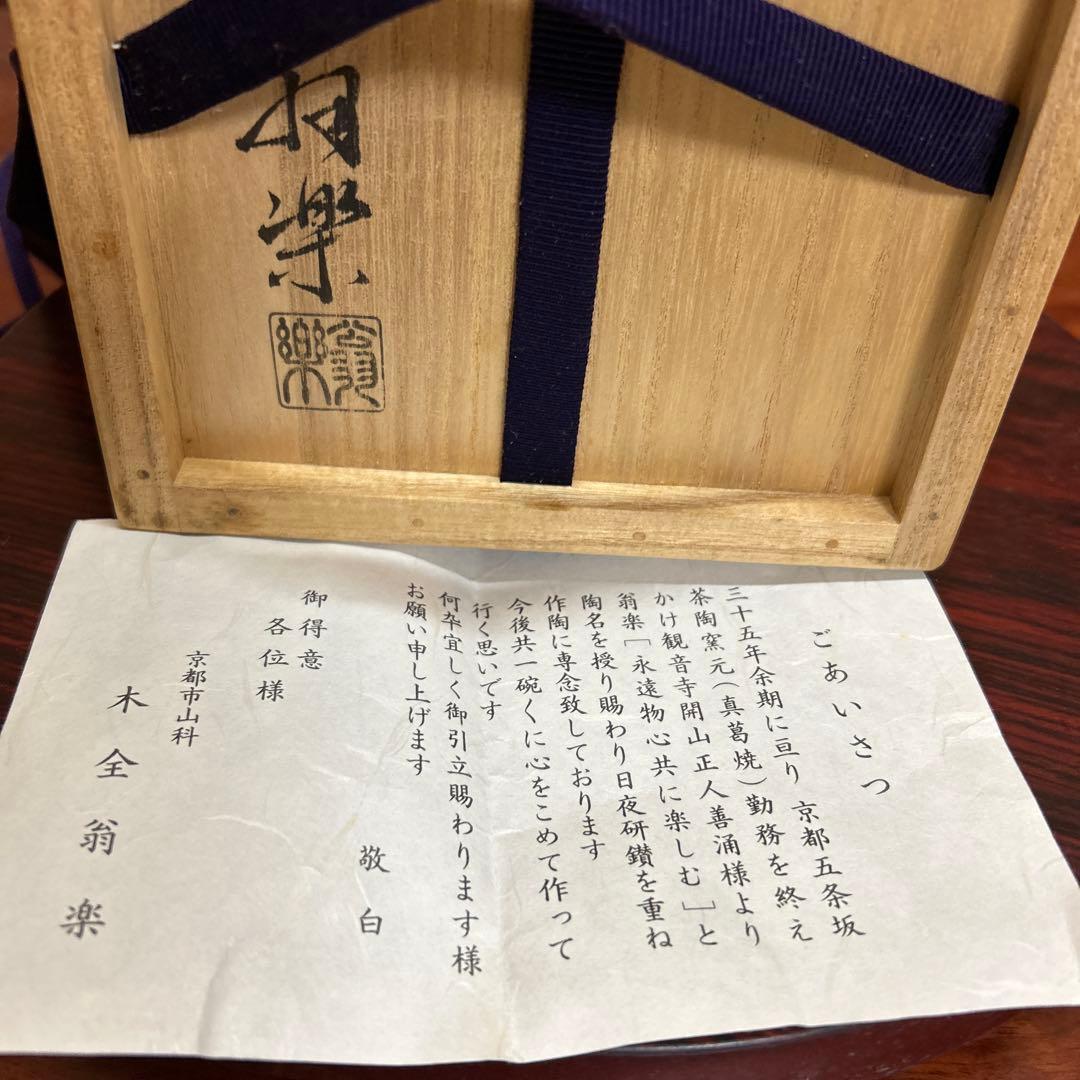 翁楽
翁樂
ごあいさつ
三十五年余期に亘り 京都五条坂
茶陶窯元(真葛焼)勤務を終え
かけ観音寺開山正人善涌様より
翁楽[永遠物心共に楽しむ]と
陶名を授り賜わり日夜研鑽を重ね
作陶に専念致しております
今後共一碗くに心をこめて作って
行く思いです
何卒宜しく御引立賜わります様
お願い申し上げます
敬白
御得意
各位様
京都市山科
木全翁楽